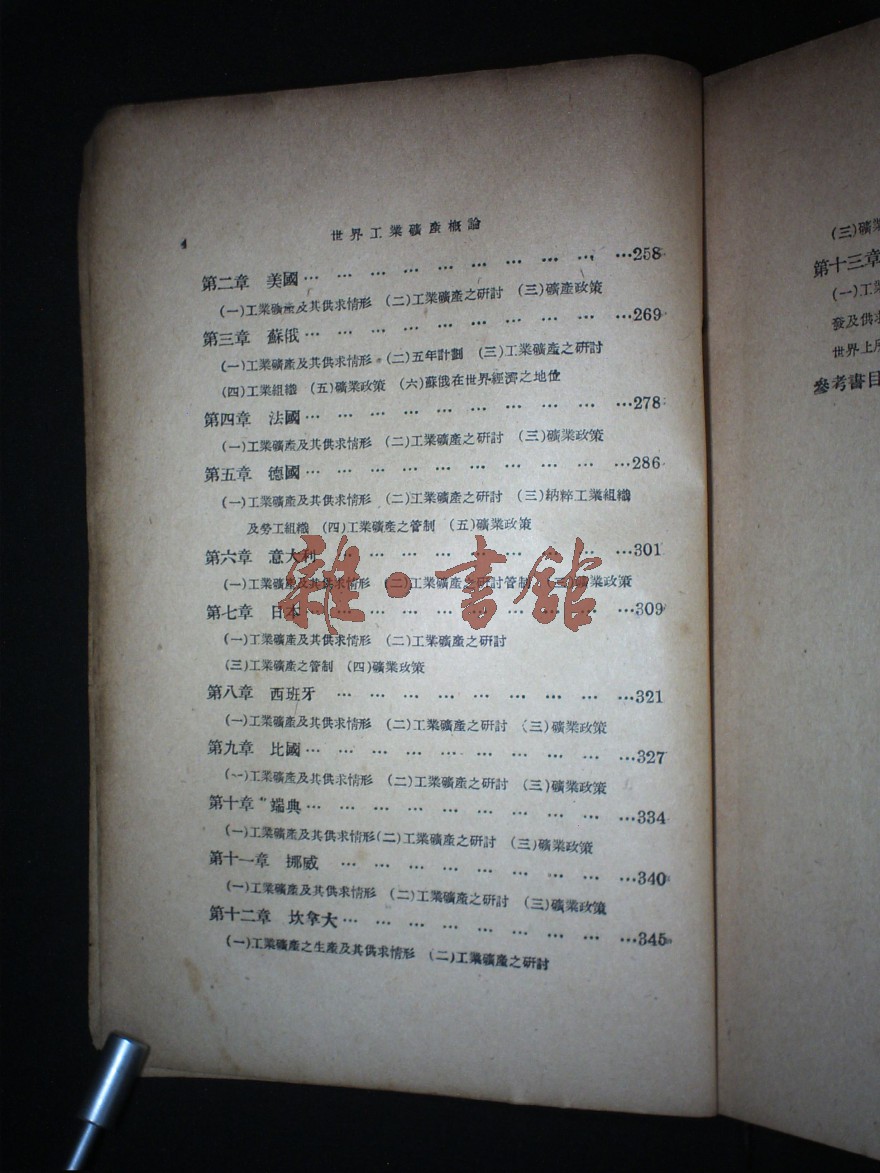 4
世界工業礦產概論
第二章 美國… … … … … … … … … …258
(一)工業礦產及其供求情形 (二)工業礦產之研討 (三)礦產政策
第三章 蘇俄… … … … … … … … … …269
(一)工業礦產及其供求情形 (二)五年計劃 (三)工業礦產之研討
(四)工業組織 (五)礦業政策 (六)蘇俄在世界經濟之地位
第四章 法國… … … … … … … … … …278
(一)工業礦產及其供求情形 (二)工業礦產之研討 (三)礦業政策
第五章 德國… … … … … … … … … …286
(一)工業礦產及其供求情形 (二)工業礦產之研討 (三)納粹工業組織
及勞工組織 (四)工業礦產之管制 (五)礦業政策
第六章 意大利 … … … … … … … … …301
(一)工業礦產及其供求情形 (二)工業礦產之研討管制 (三)礦業政策
第七章 日本… … … … … … … … … …309
(一)工業礦產及其供求情形 (二)工業礦產之研討
(三)工業礦產之管制 (四)礦業政策
第八章 西班牙 … … … … … … … … …321
(一)工業礦產及其供求情形 (二)工業礦產之研討 (三)礦業政策
第九章 比國… … … … … … … … … …327
(一)工業礦產及其供求情形 (二)工業礦產之研討 (三)礦業政策
第十章 瑞典… … … … … … … … … …334
(一)工業礦產及其供求情形(二)工業礦產之研討 (三)礦業政策
第十一章 挪威 … … … … … … … … …340
(一)工業礦產及其供求情形 (二)工業礦產之研討 (三)礦業政策
第十二章 坎拿大… … … … … … … … …345
(一)工業礦產之生產及其供求情形 (二)工業礦產之研討
雜·書館
(三)礦業
第十三章
(一)工業
發及供求
世界上所
參考書目